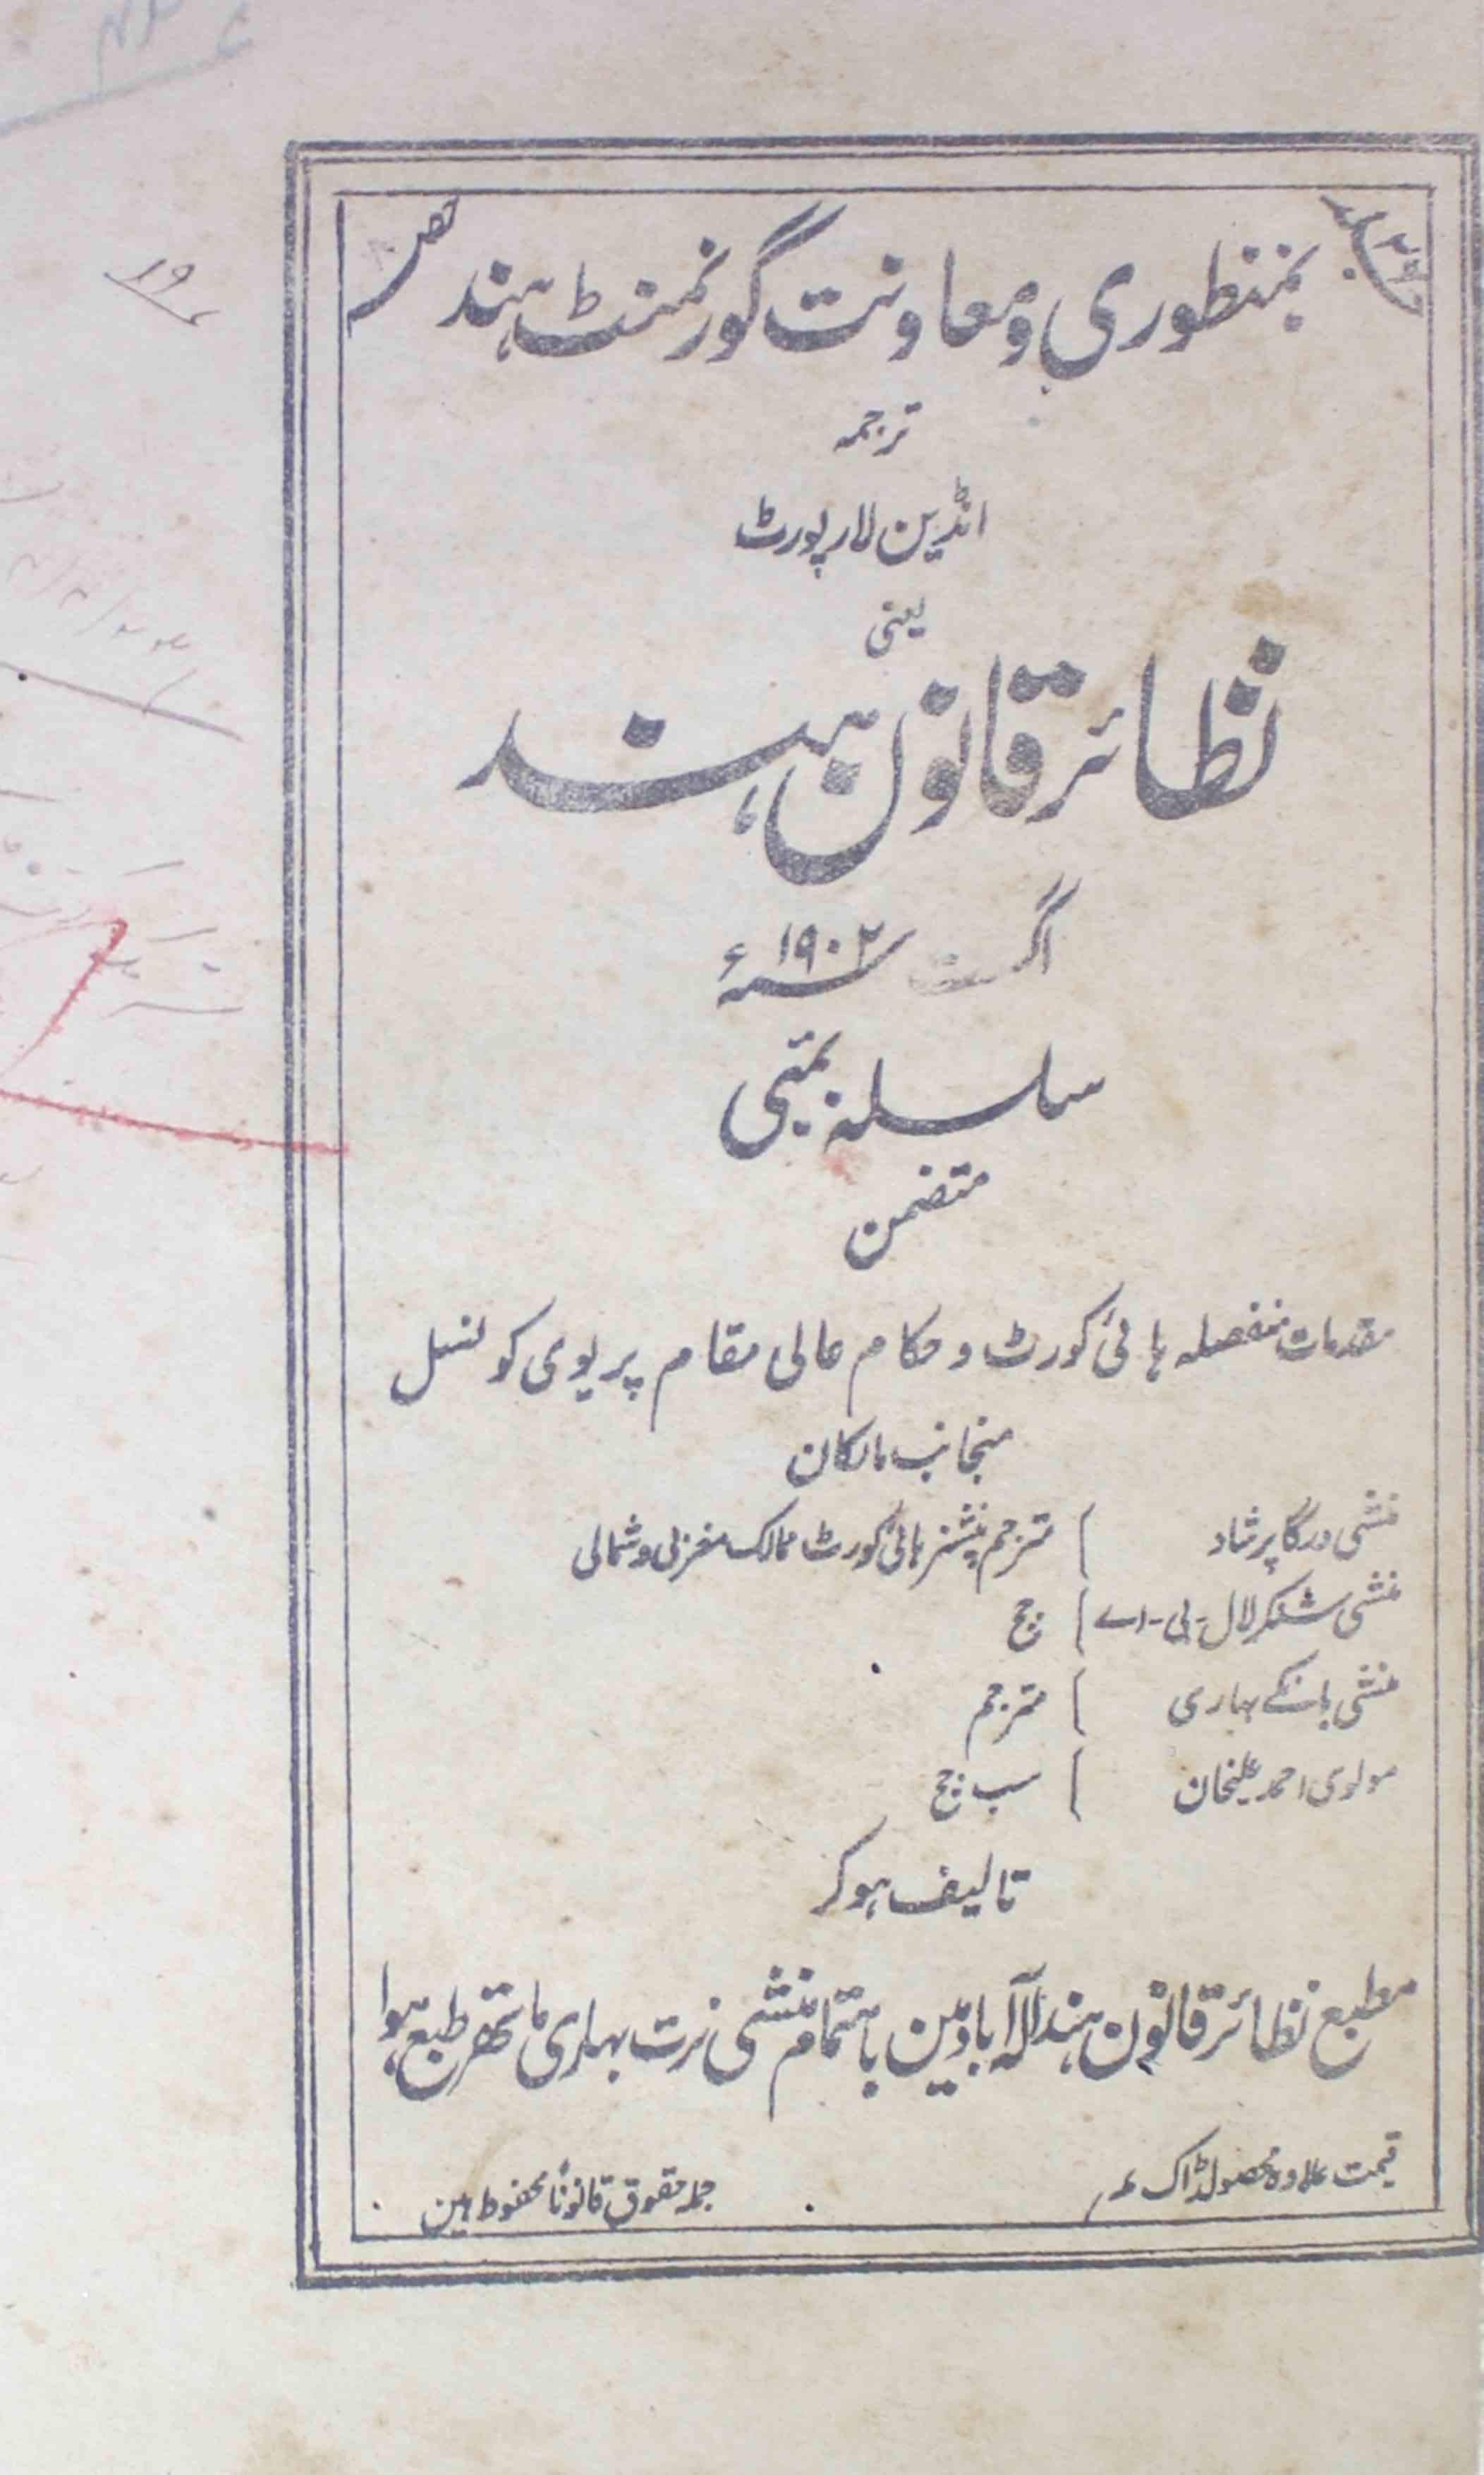 بمنظوری و معاونت گورنمنٹ ہند
حصہ
ترجمہ
انڈین لا رپورٹ
یعنی
نظائر قانون ہند
اگست ۱۹۰۲ سنہ ء
سلسلہ بمبئی
متضمن
مقدمات منفصلہ ہائی کورٹ و حکام عالی مقام پریوی کونسل
منجانب مالکان
منشی درگا پرشاد ) مترجم پنشنر ہائی کورٹ ممالک مغربی و شمالی
منشی شنکر لال - بی - اے ) جج
منشی بانکے بہاری ) مترجم
مولوی احمد علیخان ) سب جج
تالیف ہوکر
مطبع نظائر قانون ہند الہ آباد مین باہتمام منشی نرت بہاری ماتھر طبع ہوا
قیمت علاوہ محصولڈاک
جملہ حقوق قانوناً محفوظ ہین